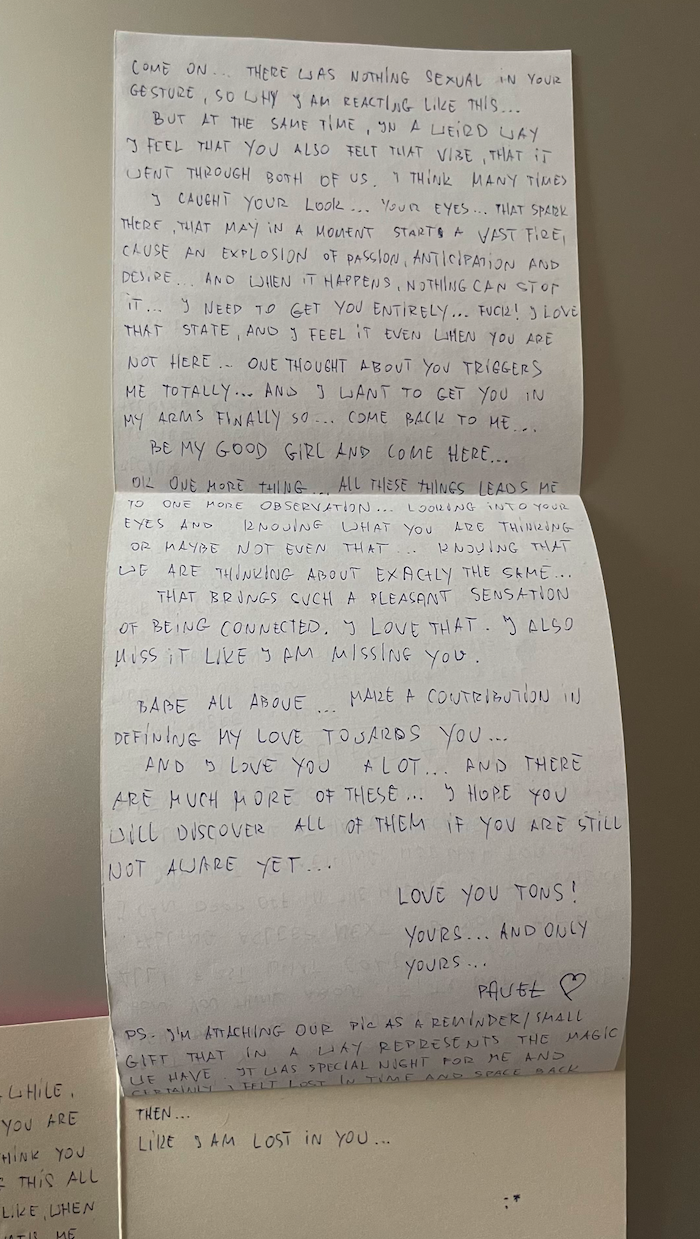 COME ON... THERE WAS NOTHING SEXUAL IN YOUR
GESTURE, SO WHY I AM REACTING LIKE THIS...
BUT AT THE SAME TIME, IN A WEIRD WAY
I FEEL THAT YOU ALSO FELT THAT VIBE, THAT IT
WENT THROUGH BOTH OF US. I THINK MANY TIMES
I CAUGHT YOUR LOOK... YOUR EYES... THAT SPARK
THERE, THAT MAY IN A MOMENT STARTS A VAST FIRE,
CAUSE AN EXPLOSION OF PASSION, ANTICIPATION AND
DESIRE... AND WHEN IT HAPPENS, NOTHING CAN STOP
IT... I NEED TO GET YOU ENTIRELY... FUCK! I LOVE
THAT STATE, AND I FEEL IT EVEN WHEN YOU ARE
NOT HERE... ONE THOUGHT ABOUT YOU TRIGGERS
ME TOTALLY... AND I WANT TO GET YOU IN
MY ARMS FINALLY SO... COME BACK TO ME...
BE MY GOOD GIRL AND COME HERE...
OK ONE MORE THING... ALL THESE THINGS LEADS ME
TO ONE MORE OBSERVATION... LOOKING INTO YOUR
EYES AND KNOWING WHAT YOU ARE THINKING
OR MAYBE NOT EVEN THAT... KNOWING THAT
WE ARE THINKING ABOUT EXACTLY THE SAME...
THAT BRINGS SUCH A PLEASANT SENSATION
OF BEING CONNECTED. I LOVE THAT. I ALSO
MISS IT LIKE I AM MISSING YOU.
BABE ALL ABOVE... MAKE A CONTRIBUTION IN
DEFINING MY LOVE TOWARDS YOU...
AND I LOVE YOU A LOT... AND THERE
ARE MUCH MORE OF THESE... I HOPE YOU
WILL DISCOVER ALL OF THEM IF YOU ARE STILL
NOT AWARE YET...
LOVE YOU TONS!
YOURS... AND ONLY
YOURS...
PAVEL ♡
PS. I'M ATTACHING OUR PIC AS A REMINDER/SMALL
GIFT THAT IN A WAY REPRESENTS THE MAGIC
WE HAVE. IT WAS SPECIAL NIGHT FOR ME AND
CERTAINLY I FELT LOST IN TIME AND SPACE BACK
THEN...
LIKE I AM LOST IN YOU...
:*
WHILE,
YOU ARE
THINK YOU
THIS ALL
LIKE, WHEN
ME